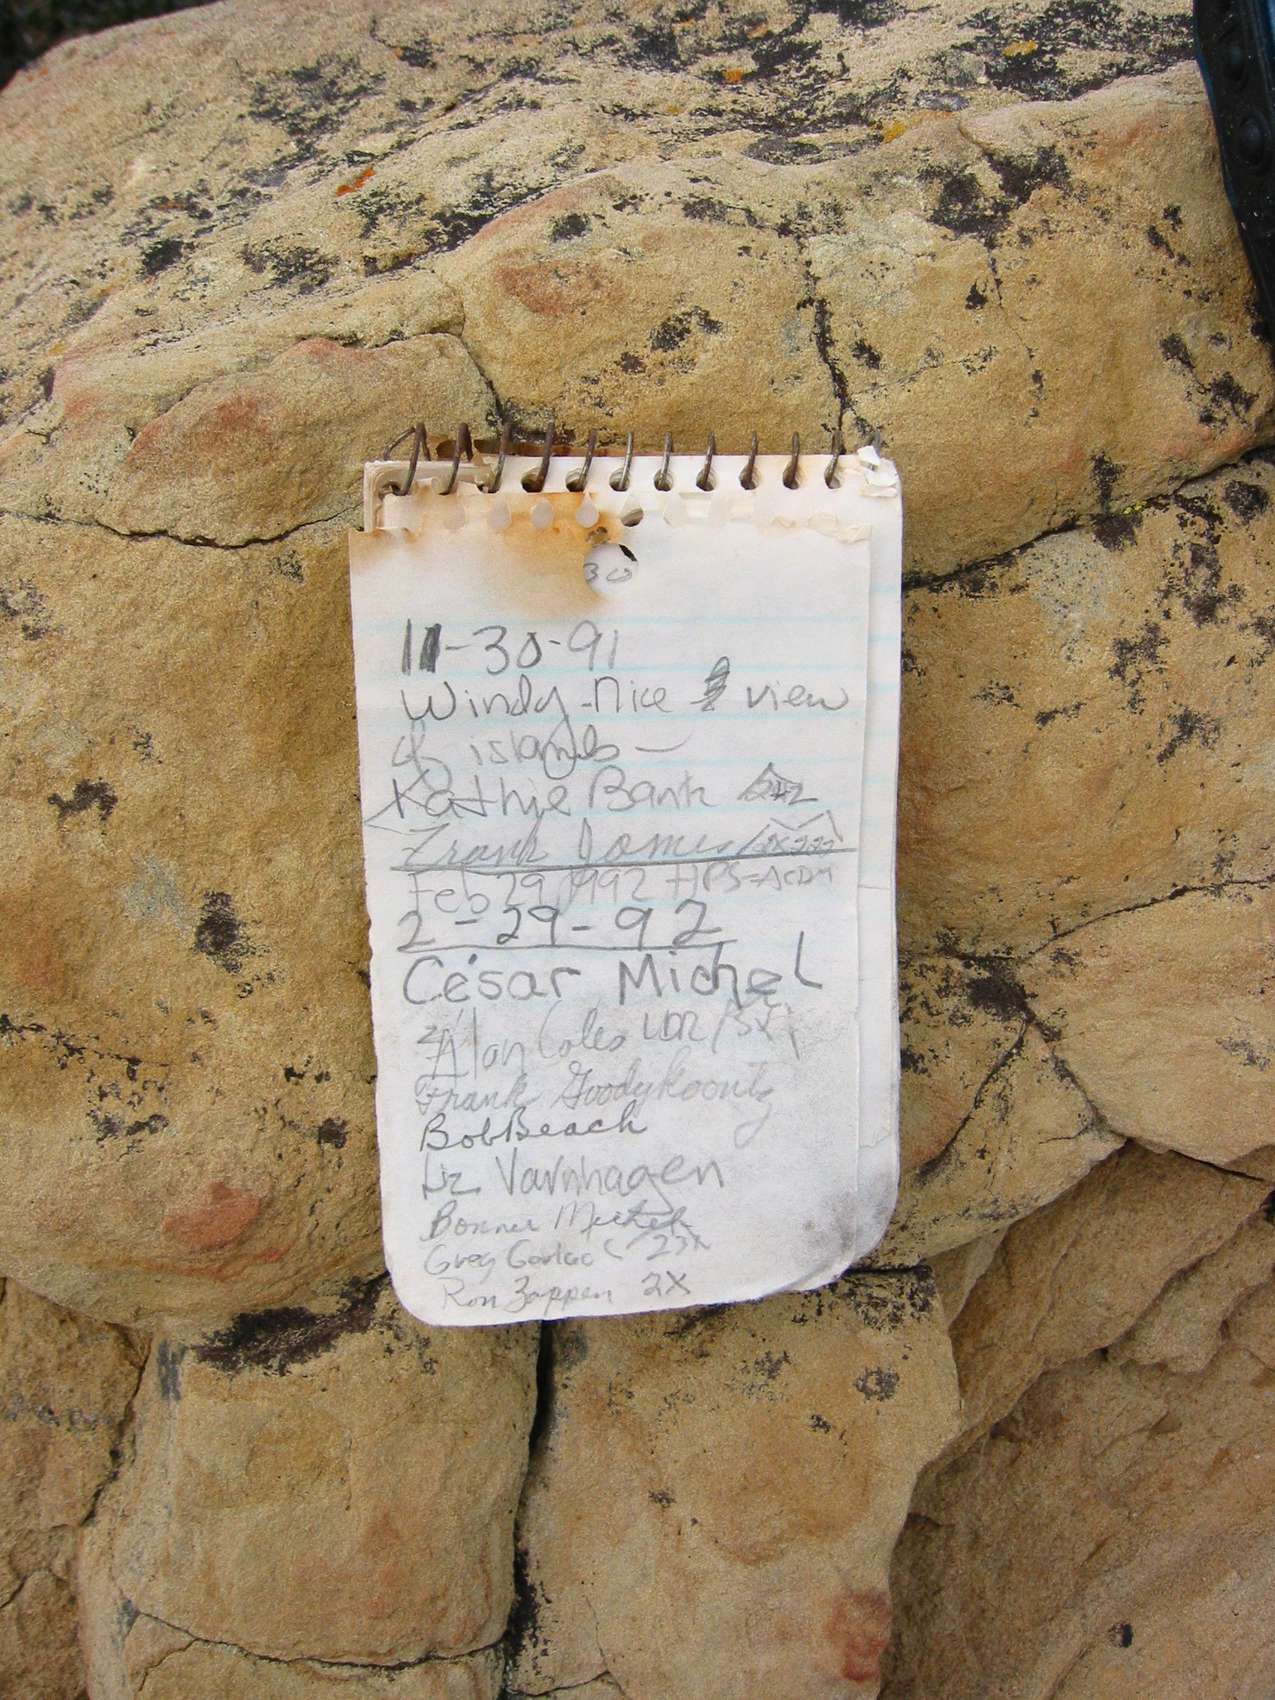 30
11-30-91
Windy-Nice view
of islands —
Kathie Bank
Frank James
Feb 29 1992 HPS-
2-29-92
César Michel
Alan Coles LDR
Frank Goodykoontz
Bob Beach
Liz Varnhagen
Bonnie
Greg 23X
Ron Zappen 2X